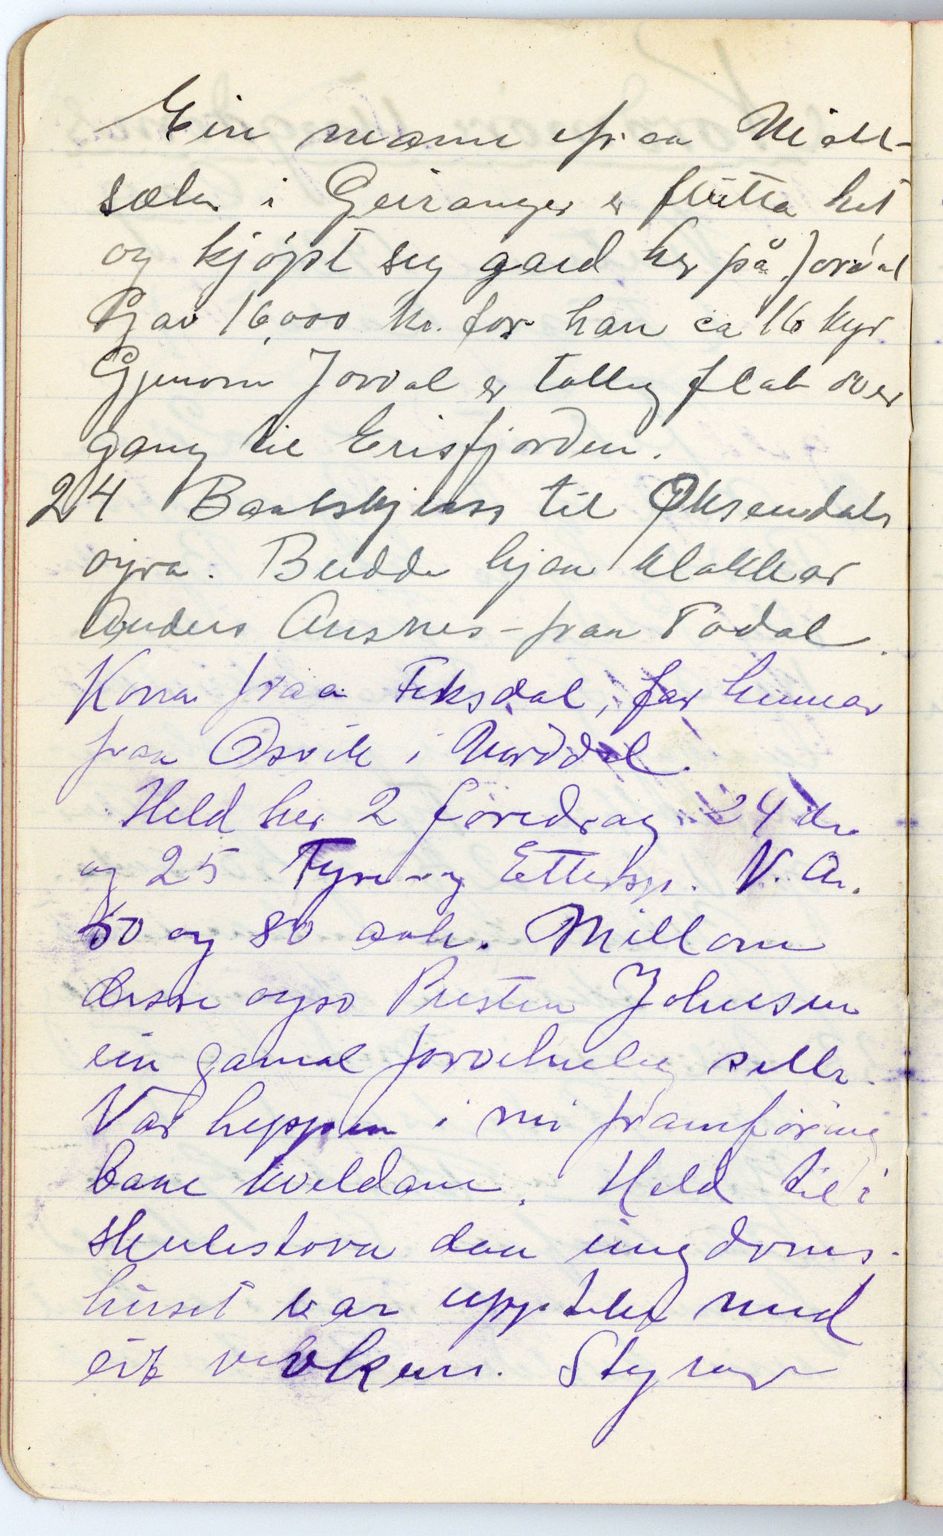 Ein mann fraa Møll-
sæter i Geiranger er flutta hit
og kjøpt seg gard her på Jordal
Gav 16,000 kr. for han ca 16 kyr
Gjenom Jordal er talleg flat over
gang til Erisfjorden.
24 Baatskyss til Øksendals
øyra. Budde hjaa klokkar
Anders Ansnes - fraa Todal.
Kona fraa Fiksdal, far hennar
fraa Osvik i Norddal.
Held her 2 foredrag 24de
og 25 Fyre- og Ettersp. N. A.
50 og 80 aah. Millom
desse ogso Presten Johnsen
ein gamal forvehneleg
Var heppen i mi framføring
baae kveldane. Held til i
skulestova daa ungdoms-
huset var uppteke med
eit vevkurs. Styrar